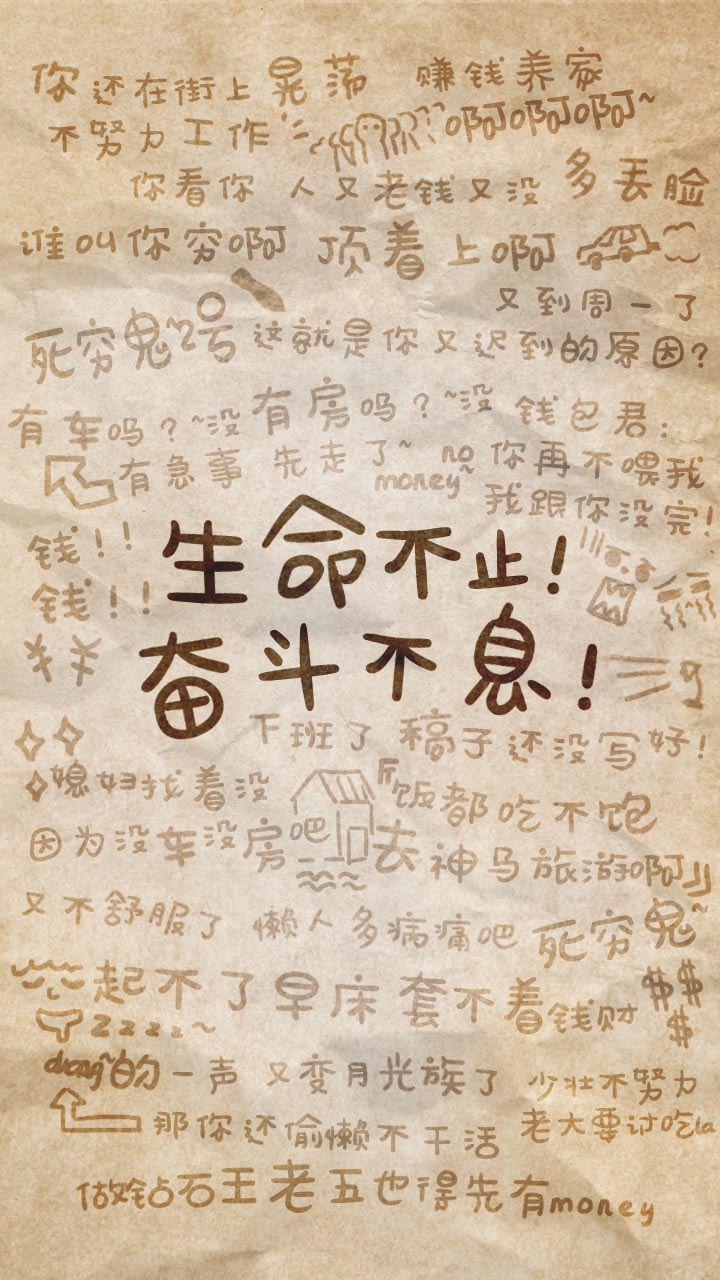 你还在街上晃荡 赚钱养家
不努力工作 啊啊啊~
你看你 人又老钱又没 多丢脸
谁叫你穷啊 顶着上啊
又到周一了
死穷鬼~2号 这就是你又迟到的原因?
有车吗?~没有房吗?~没 钱包君:
有急事 先走了~ no money~ 你再不喂我
我跟你没完!
钱!!
钱!!
生命不止!
奋斗不息!
下班了 稿子还没写好!
媳妇找着没 饭都吃不饱
因为没车没房吧 去神马旅游啊
又不舒服了 懒人多病痛吧 死穷鬼~
起不了早床 套不着钱财 $$$
zzzz~
duang~的一声 又变月光族了 少壮不努力
那你还偷懒不干活 老大要讨吃la
做钻石王老五也得先有money